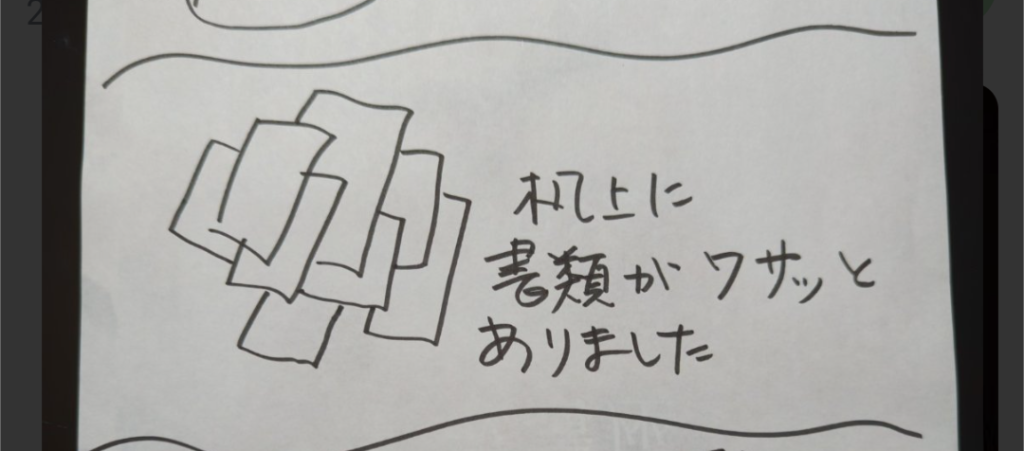 机上に
書類が ワサッと
ありました